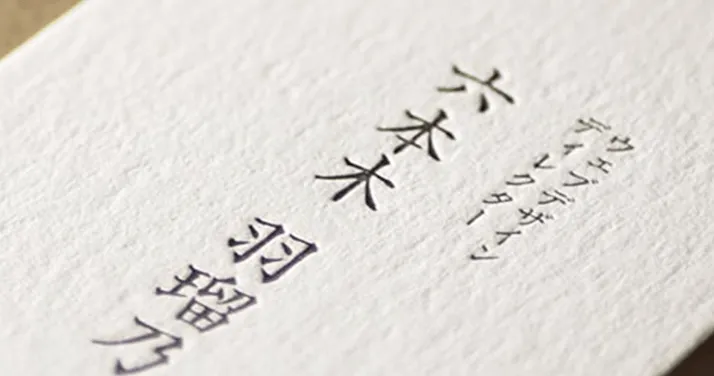 ウェブデザイン
ディレクター
六本木 羽瑠乃